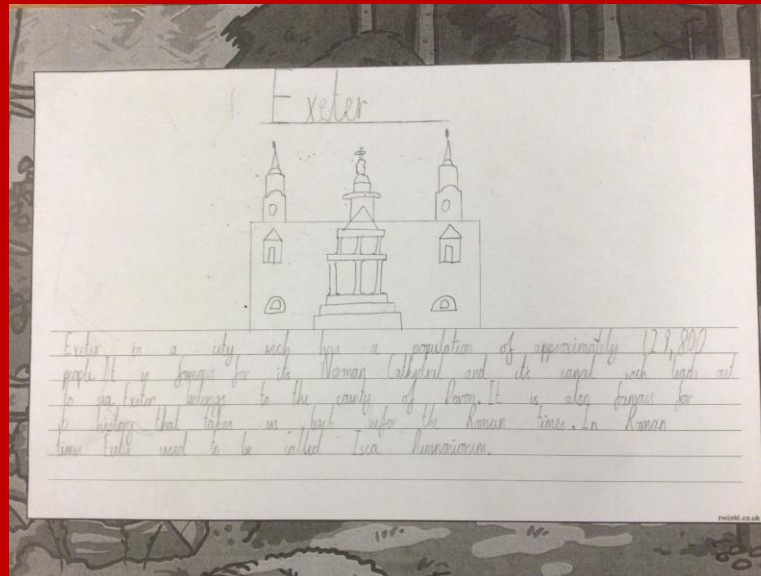 Exeter
Exeter is a city wich has a population of approximately 129,800
people. It is famous for its Norman Cathedral and its canal wich leads out
to sea. Exeter belongs to the county of Devon. It is also famous for
its history that takes us back befor the Roman times. In Roman
times Exeter used to be called Isca
twinkl.co.uk